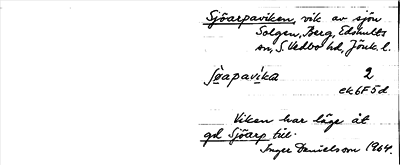 Sjöarpaviken, vik av sjön
Solgen, Berg, Edshults
sn, S. Vedbo hd, Jönk. l.
söapavika 2
ek 6F5d
Viken har läge åt
gd Sjöarp till.
Inger Danielsson 1964.